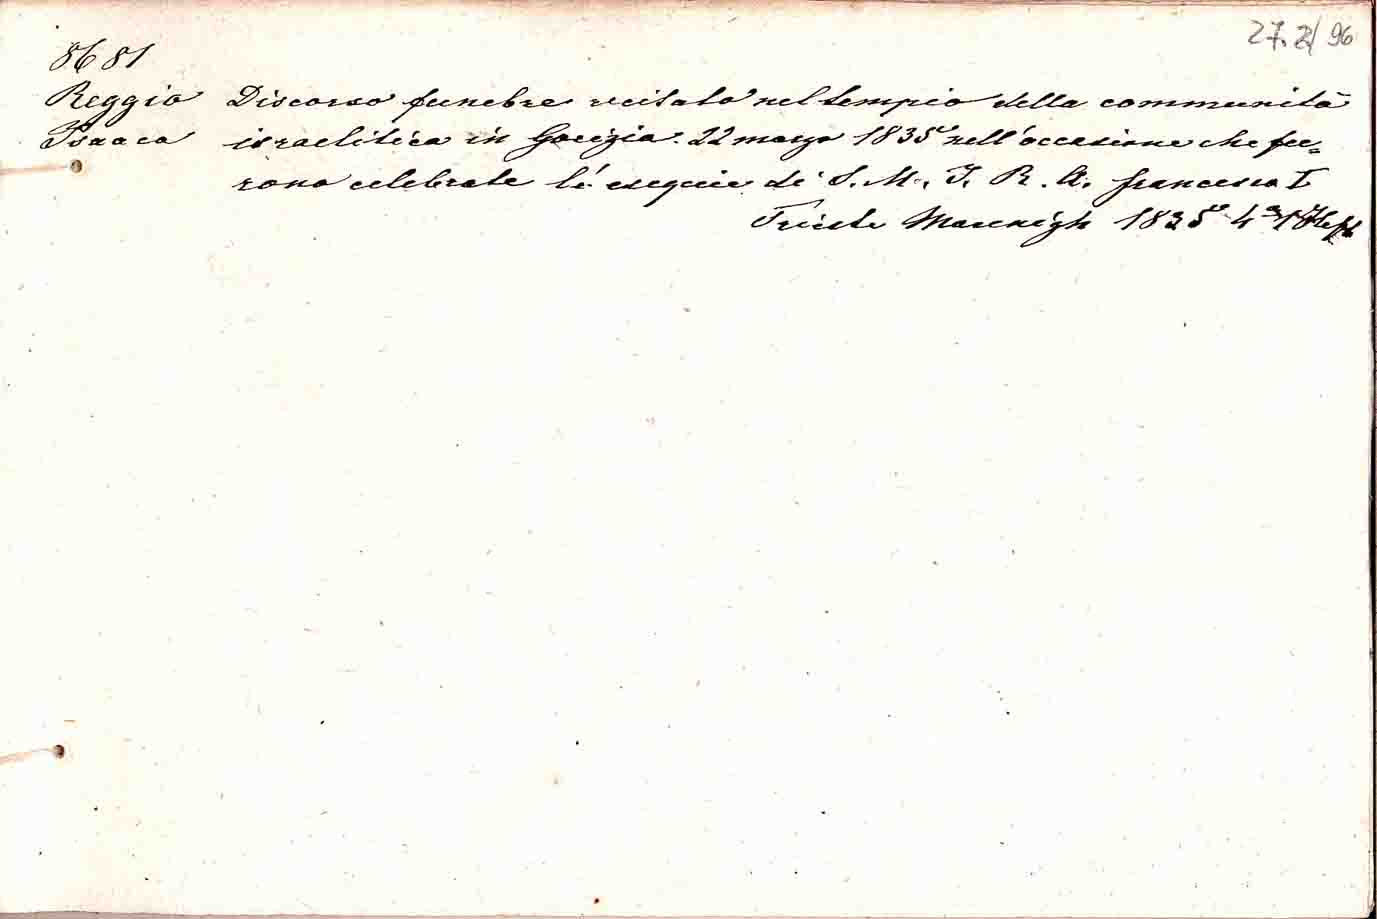 27.2/96
8681
Reggio Discorso funebre recitato nel tempio della communità
Isaaco israelitica in Gorizia. 22 marzo 1835 nell'occasione che fu=
rono celebrate le esequie di S. M. I. R. A. Francesco I
Trieste Marenigh 1835 4°